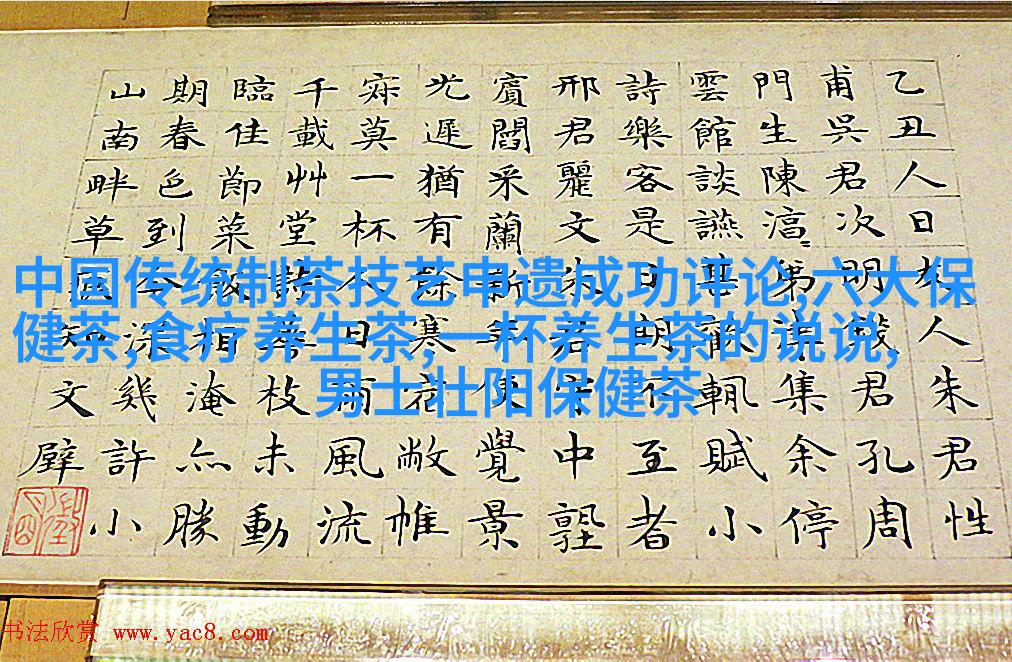 中国传统制茶技艺申遗成功评论,六大保
健茶,食疗养生茶,一杯养生茶的说说,
男士壮阳保健茶
乙丑人日人朱君性
甫吳君次明君孔周
門生陳集余停
雲館談讌輒賦小
詩樂客是日期不至者
邢君麗文朱君中
賓閻采蘭新年便覺景
光遲猶有餘寒花敝帷
寂莫一杯人日雨風流
千載艸堂詩枝未動
臨佳節菜飯相淹亦勝
期春色到今深幾許小
山南畔草知文壁
书法欣赏 www.yac8.com